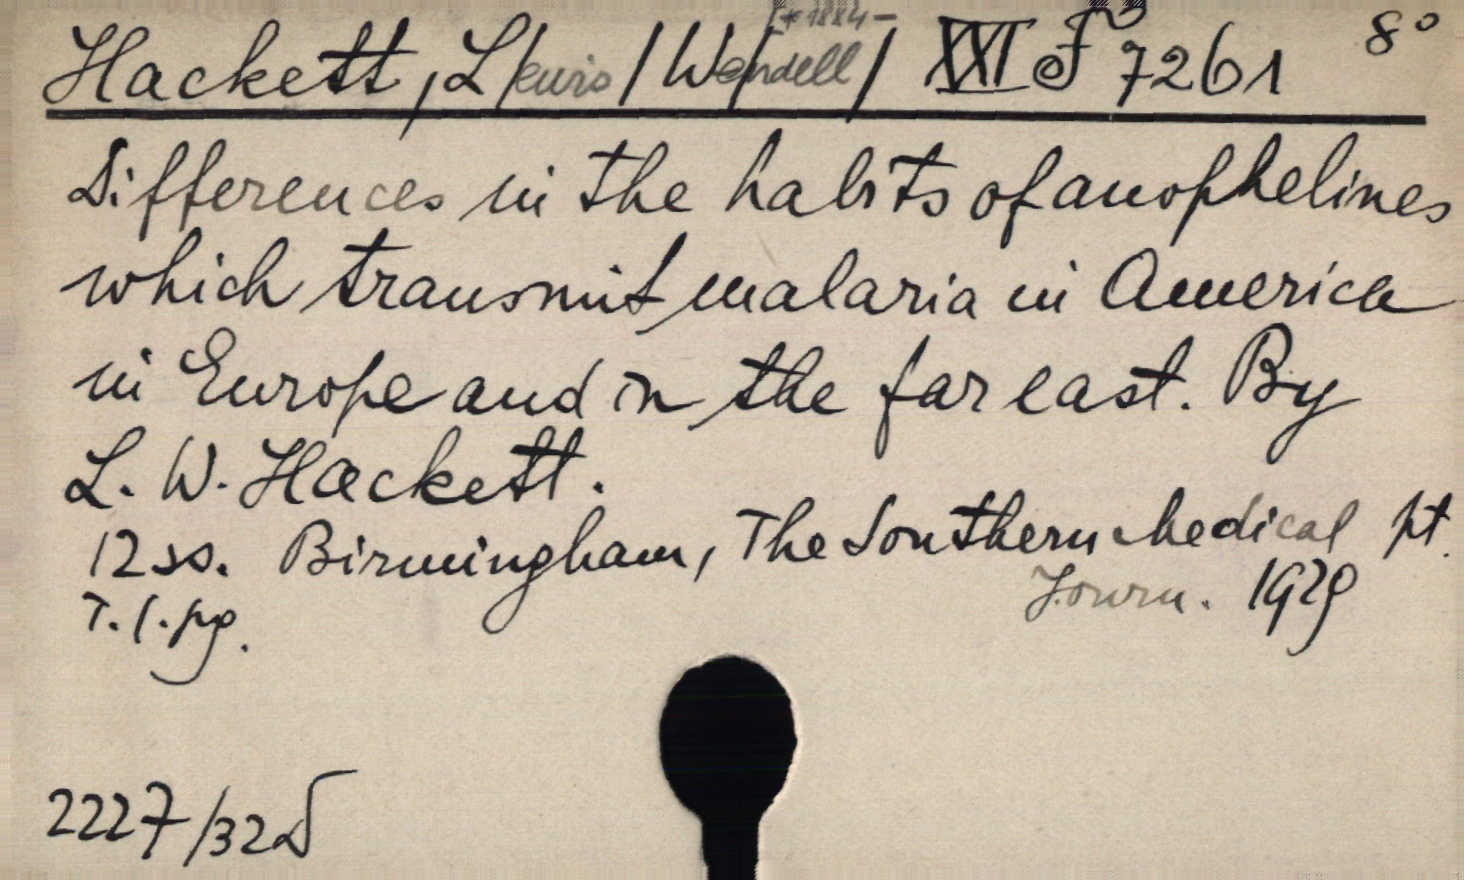 [*1884–
Hackett, L/ewis/ W/endell/ XXI J 7261 8°
Differences in the habits of anophelines
which transmit malaria in America
in Europe and in the far east. By
L. W. Hackett.
12 ss. Birmingham, The Southern Medical pt.
Journ. 1929
T. l. pg.
2227/32